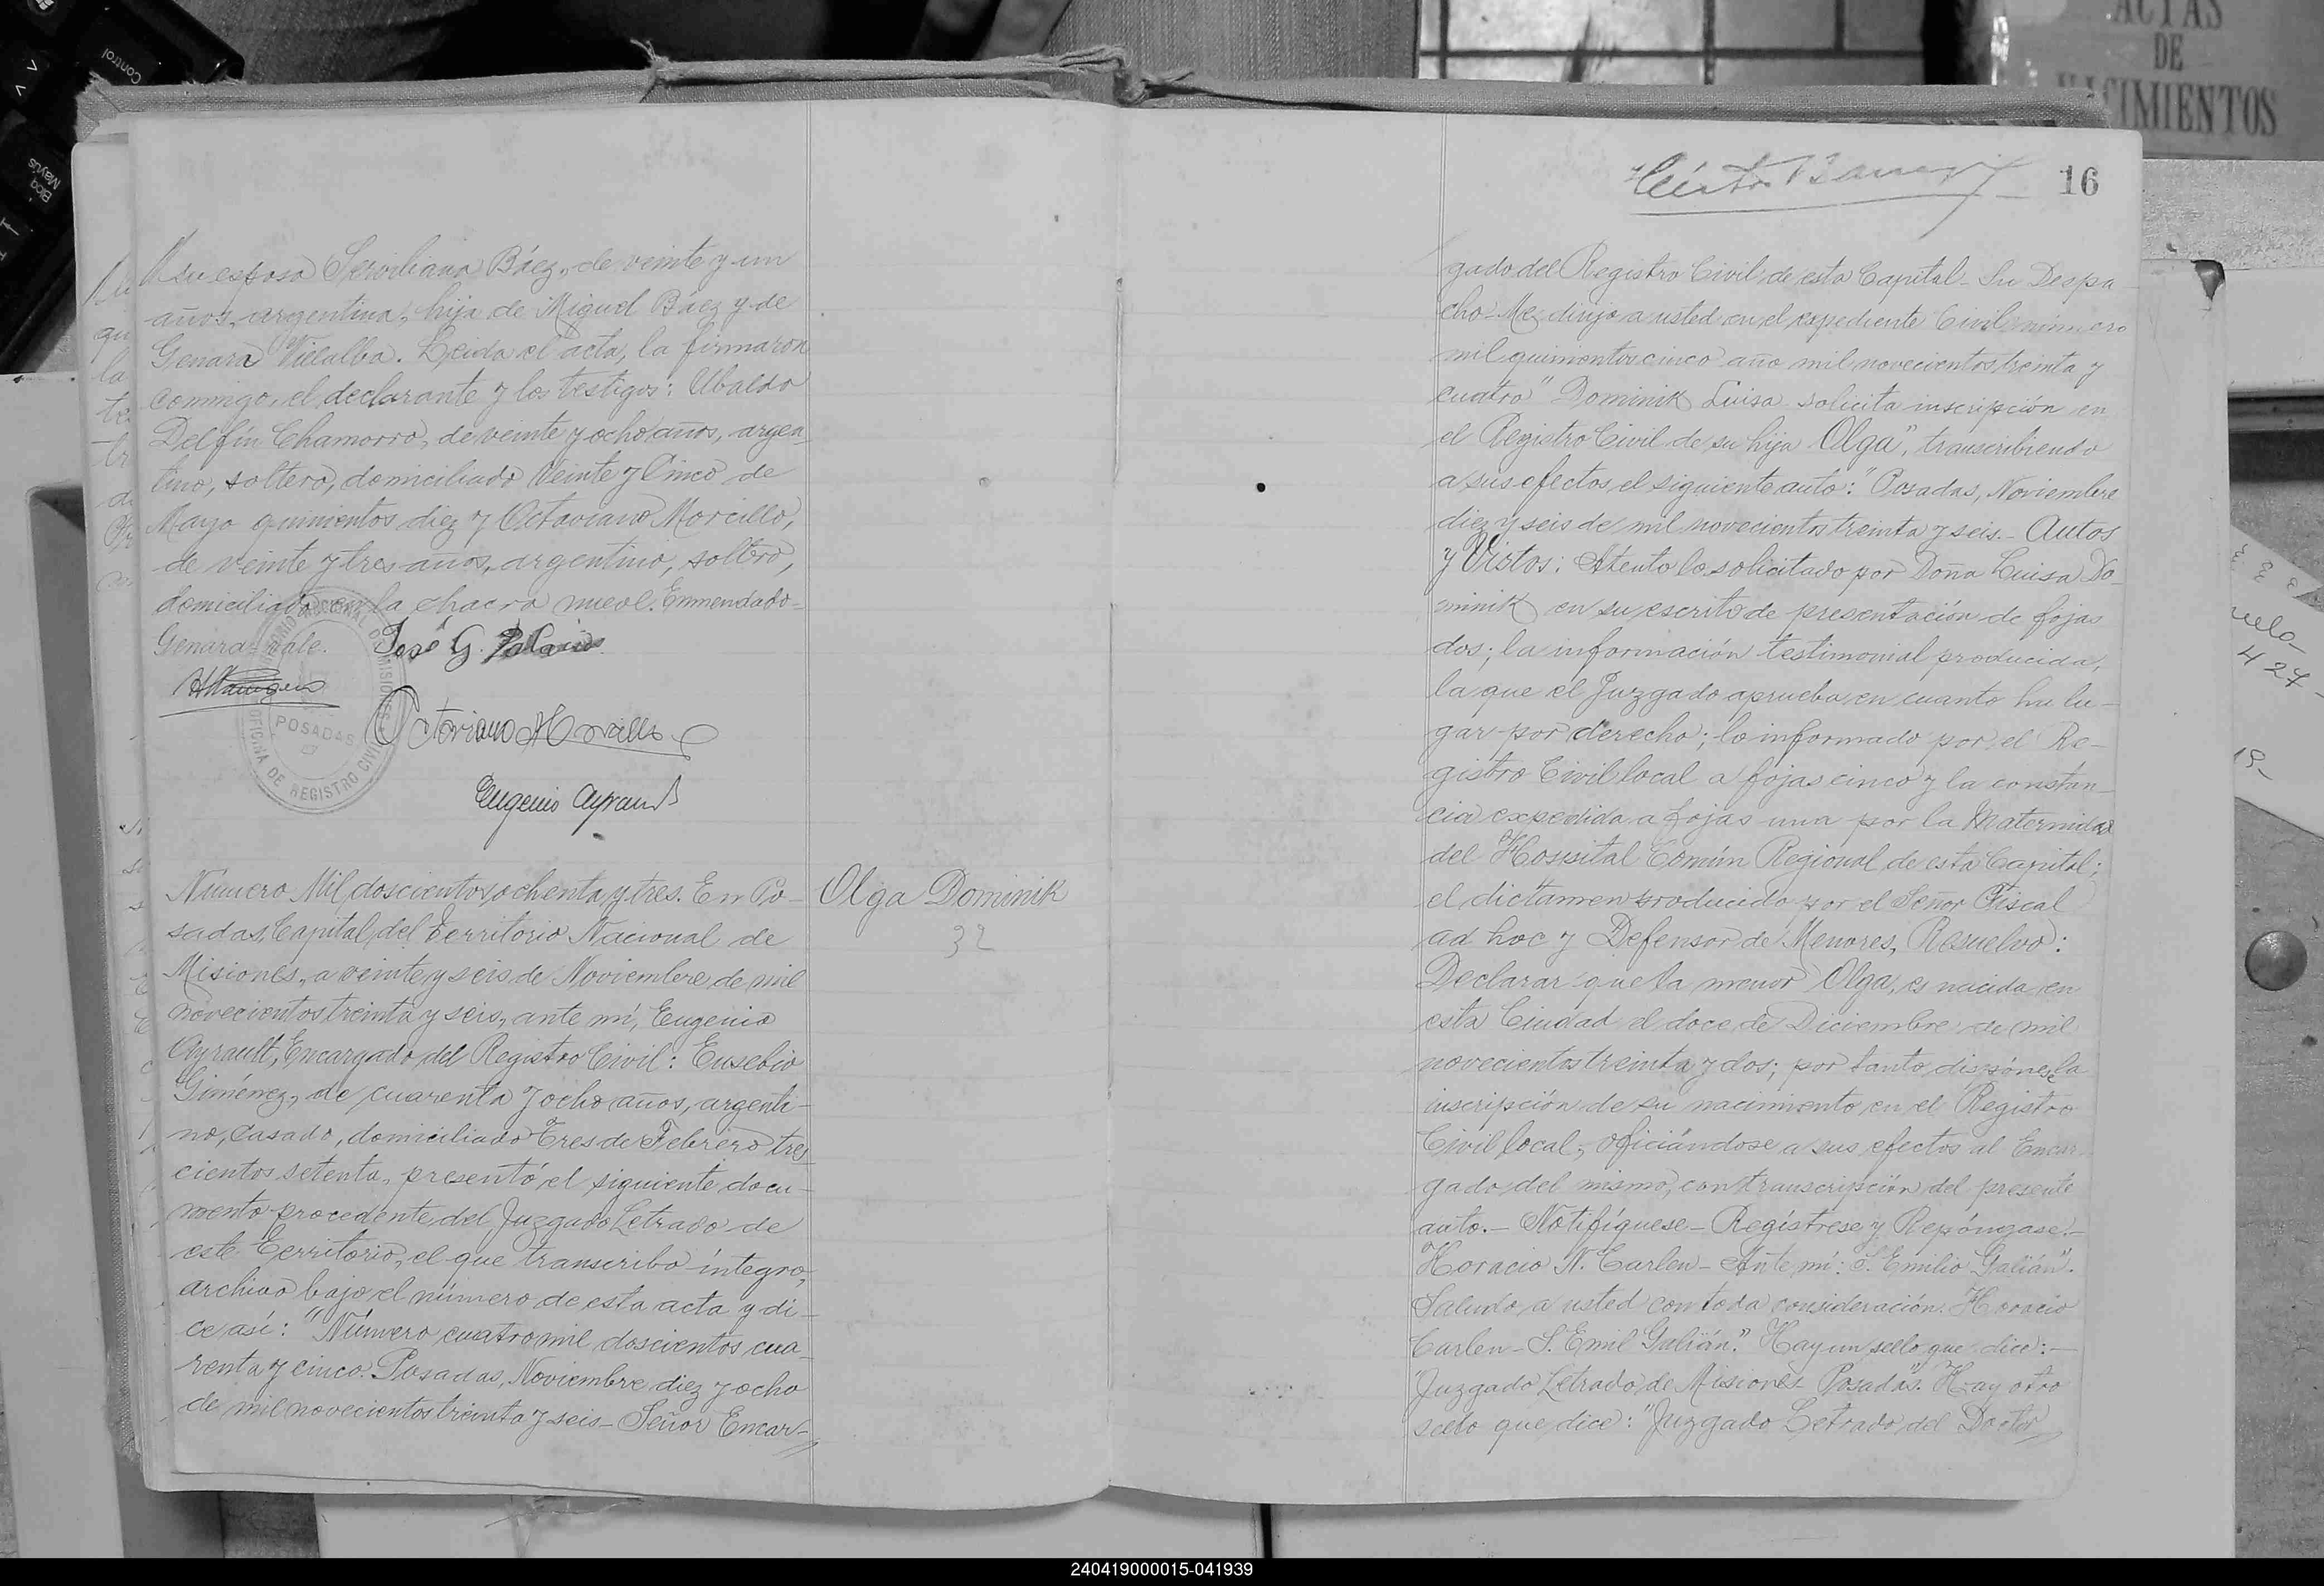 su esposa Serviliana Báez, de veinte y un
años, argentina, hija de Miguel Báez y de
Genara Villalba. Leida el acta, la firmaron
comigo, el declarante y los testigos: Ubaldo
Delfín Chamorro, de veinte y ocho años, argen-
tino, soltero, domiciliado Veinte y Cinco de
Mayo quinientos diez y Octaviano Morcillo,
de veinte y tres años, argentino, soltero,
domiciliado en la chacra nueve. Enmendado-
Genara-vale.
José G. Palacios
Octaviano Morcillo
Eugenio Ayrault
POSADAS
OFICINA DE REGISTRO CIVIL
Número Mil doscientos ochenta y tres. En Po-
sadas, Capital del Territorio Nacional de
Misiones, a veinte y seis de Noviembre de mil
novecientos treinta y seis, ante mí, Eugenio
Ayrault, Encargado del Registro Civil: Eusebio
Giménez, de cuarenta y ocho años, argenti-
no, casado, domiciliado Tres de Febrero tres
cientos setenta, presentó el siguiente docu-
mento procedente del Juzgado Letrado de
este Territorio, el que transcribo íntegro,
archivo bajo el número de esta acta y di-
ce así: "Número cuatro mil doscientos cua-
renta y cinco. Posadas, Noviembre diez y ocho
de mil novecientos treinta y seis- Señor Encar-
Olga Dominik
32
16
gado del Registro Civil de esta Capital- Su Despa
cho- Me dirijo a usted en el expediente Civil número
mil quinientos cinco año mil novecientos treinta y
cuatro " Dominik Luisa solicita inscripción en
el Registro Civil de su hija Olga", transcribiendo
a sus efectos el siguiente auto: "Posadas, Noviembre
diez y seis de mil novecientos treinta y seis.- Autos
y Vistos: Atento lo solicitado por Doña Luisa Do-
minik en su escrito de presentación de fojas
dos; la información testimonial producida,
la que el Juzgado aprueba en cuanto ha lu-
gar por derecho; lo informado por el Re-
gistro Civil local a fojas cinco y la constan-
cia expedida a fojas una por la Maternidad
del Hospital Común Regional de esta Capital;
el dictamen producido por el Señor Fiscal
ad hoc y Defensor de Menores, Resuelvo:
Declarar que la menor Olga, es nacida en
esta Ciudad el doce de Diciembre de mil
novecientos treinta y dos; por tanto dispónese la
inscripción de su nacimiento en el Registro
Civil local, oficiándose a sus efectos al Encar-
gado del mismo, con transcripción del presente
auto.- Notifíquese- Regístrese y Repóngase.-
Horacio N. Carlen- Ante mí: S. Emilio Galián".
Saludo a usted con toda consideración. Horacio
Carlen- S. Emil Galián." Hay un sello que dice:-
"Juzgado Letrado de Misiones- Posadas". Hay otro
sello que dice: "Juzgado Letrado del Doctor
ACTAS
DE
NACIMIENTOS
Control
Bloq
Mayús
427
19-
240419000015-041939